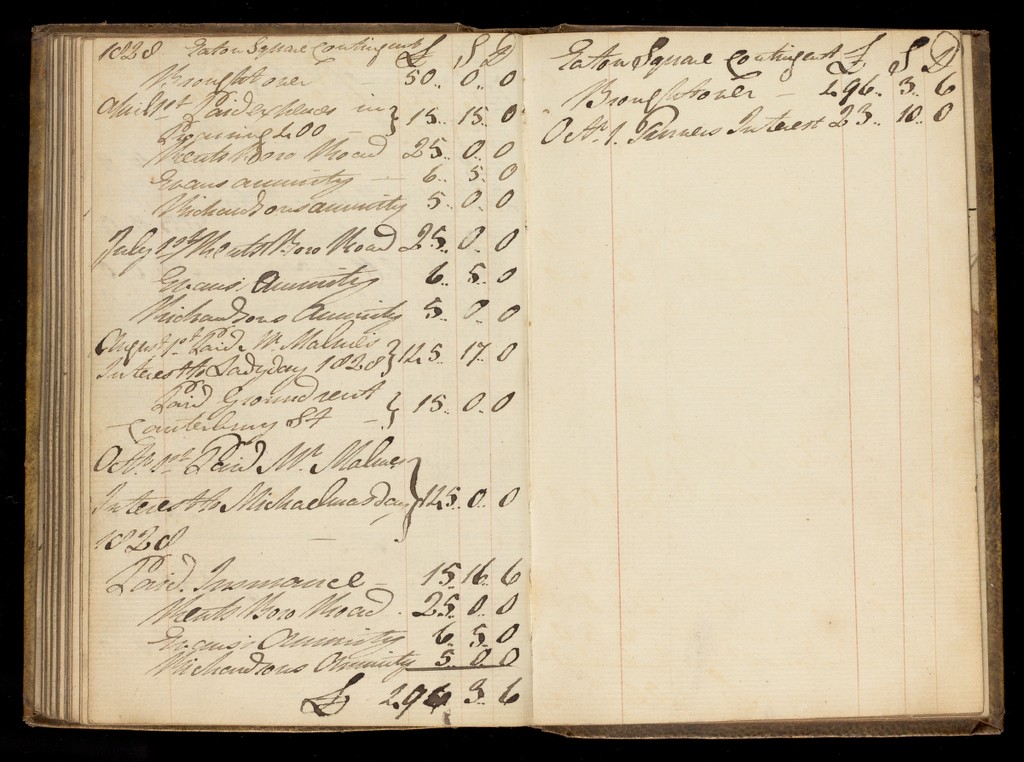 1828 Eaton Square Contingent £ S D
Brought over 50.. 0.. 0
April 1st Paid expenses in } 15.. 15.. 0
400 -
Rents Boro Road 25.. 0.. 0
Evans annuity - 6.. 5.. 0
Richardsons annuity 5.. 0.. 0
July Rents Boro Road 25.. 0.. 0
Evans's Annuity 6.. 5.. 0
Richardsons Annuity 5.. 0.. 0
August 1st Paid Mr } 45.. 17.. 0
Interest to Ladyday 1828
Paid Ground rent } 15.. 0.. 0
Canterbury St -
Octr Paid Mr
Interest to Michaelmasday } 45.. 0.. 0
1828
Paid Insurance - 15.. 16.. 6
Rents Boro Road 25.. 0.. 0
Evans's Annuity 6.. 5.. 0
Richardsons Annuity 5.. 0.. 0
£ 296.. 3.. 6
Eaton Square Contingent £ S D
Brought over - 296.. 3.. 6
Octr 1. Turners Interest 23.. 10.. 0